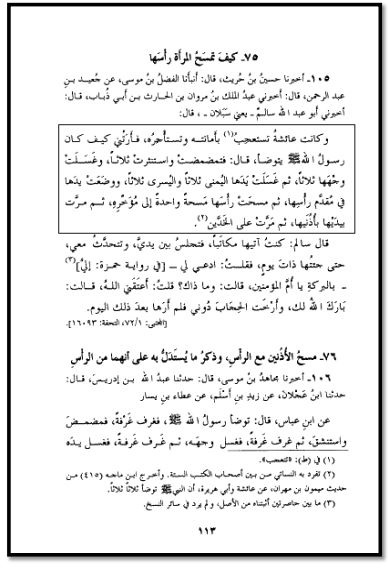 ٧٥ـ كيف تمسَحُ المرأة رأسَها
١٠٥ـ أخبرنا حسينُ بنُ حُريث، قال: أنبأنا الفضلُ بنُ موسى، عن جُعيد بنِ
عبد الرحمن، قال: أخبرني عبدُ الملك بنُ مروان بنِ الحارث بنِ أبي ذُباب، قال:
أخبرني أبو عبد الله سالمٌ ـ يعني سَبَلان ـ، قال:
وكانت عائشةُ تستعجِبُ(١) بأمانته وتستأجِرُه، فأرَتْني كيف كان
رسولُ اللهﷺ يتوضأ، قال: فتمضمضتْ واستنثرتْ ثلاثاً، وغسَلَتْ
وجْهَها ثلاثاً، ثم غسَلَتْ يَدَها اليُمنى ثلاثاً واليُسرى ثلاثاً، ووضَعَتْ يدَها
في مُقدَّم رأسِها، ثم مسحَتْ رأسَها مَسحةً واحدةً إلى مُؤخَّرِه، ثم مرَّت
بيدَيْها بأُذنَيها، ثم مَرَّتْ على الخدَّين(٢).
قال سالم: كنتُ آتيها مكاتَباً، فتجلسُ بين يديَّ، وتتحدَّثُ معي،
حتى جئتُها ذاتَ يومٍ، فقلتُ: ادعي لي ـ [في رواية حمزة: إليَّ](٣)
ـ بالبركةِ يا أُمَّ المؤمنين، قالت: وما ذاكَ؟ قلتُ: أعتَقَني اللهُ، قالت:
بَارَكَ اللهُ لك، وأرْخَت الحِجابَ دُوني فلم أرَها بعدَ ذلك اليوم.
[المجتبى: ٧٢/١، التحفة: ١٦٠٩٣].
٧٦ـ مسحُ الأُذنين مع الرأس، وذكرُ ما يُستَدَلُّ به على أنهما من الرأسِ
١٠٦ـ أخبرنا مجاهدُ بنُ موسى، قال: حدثنا عبدُ الله بنُ إدريسَ، قال:
حدثنا ابنُ عَجْلانَ، عن زيدِ بنِ أَسْلَمَ، عن عطاءِ بنِ يسار
عن ابنِ عباس، قال: توضأ رسولُ الله ﷺ، فغرف غَرْفةً، فمضمضَ
واستنشقَ، ثم غرف غَرفةً، فغسل وجهَه، ثم غَرف غَرفةً، فغسل يدَه
(١) في (ط): «تتعجب».
(٢) تفرد به النسائي من بين أصحاب الكتب الستة. وأخرج ابن ماجه (٤١٥) من
حديث ميمون بن مهران، عن عائشة وأبي هريرة، أن النبيﷺ توضأ ثلاثاً ثلاثاً.
(٣) ما بين حاصرتين أثبتناه من الأصل، ولم يرد في سائر النسخ.
١١٣